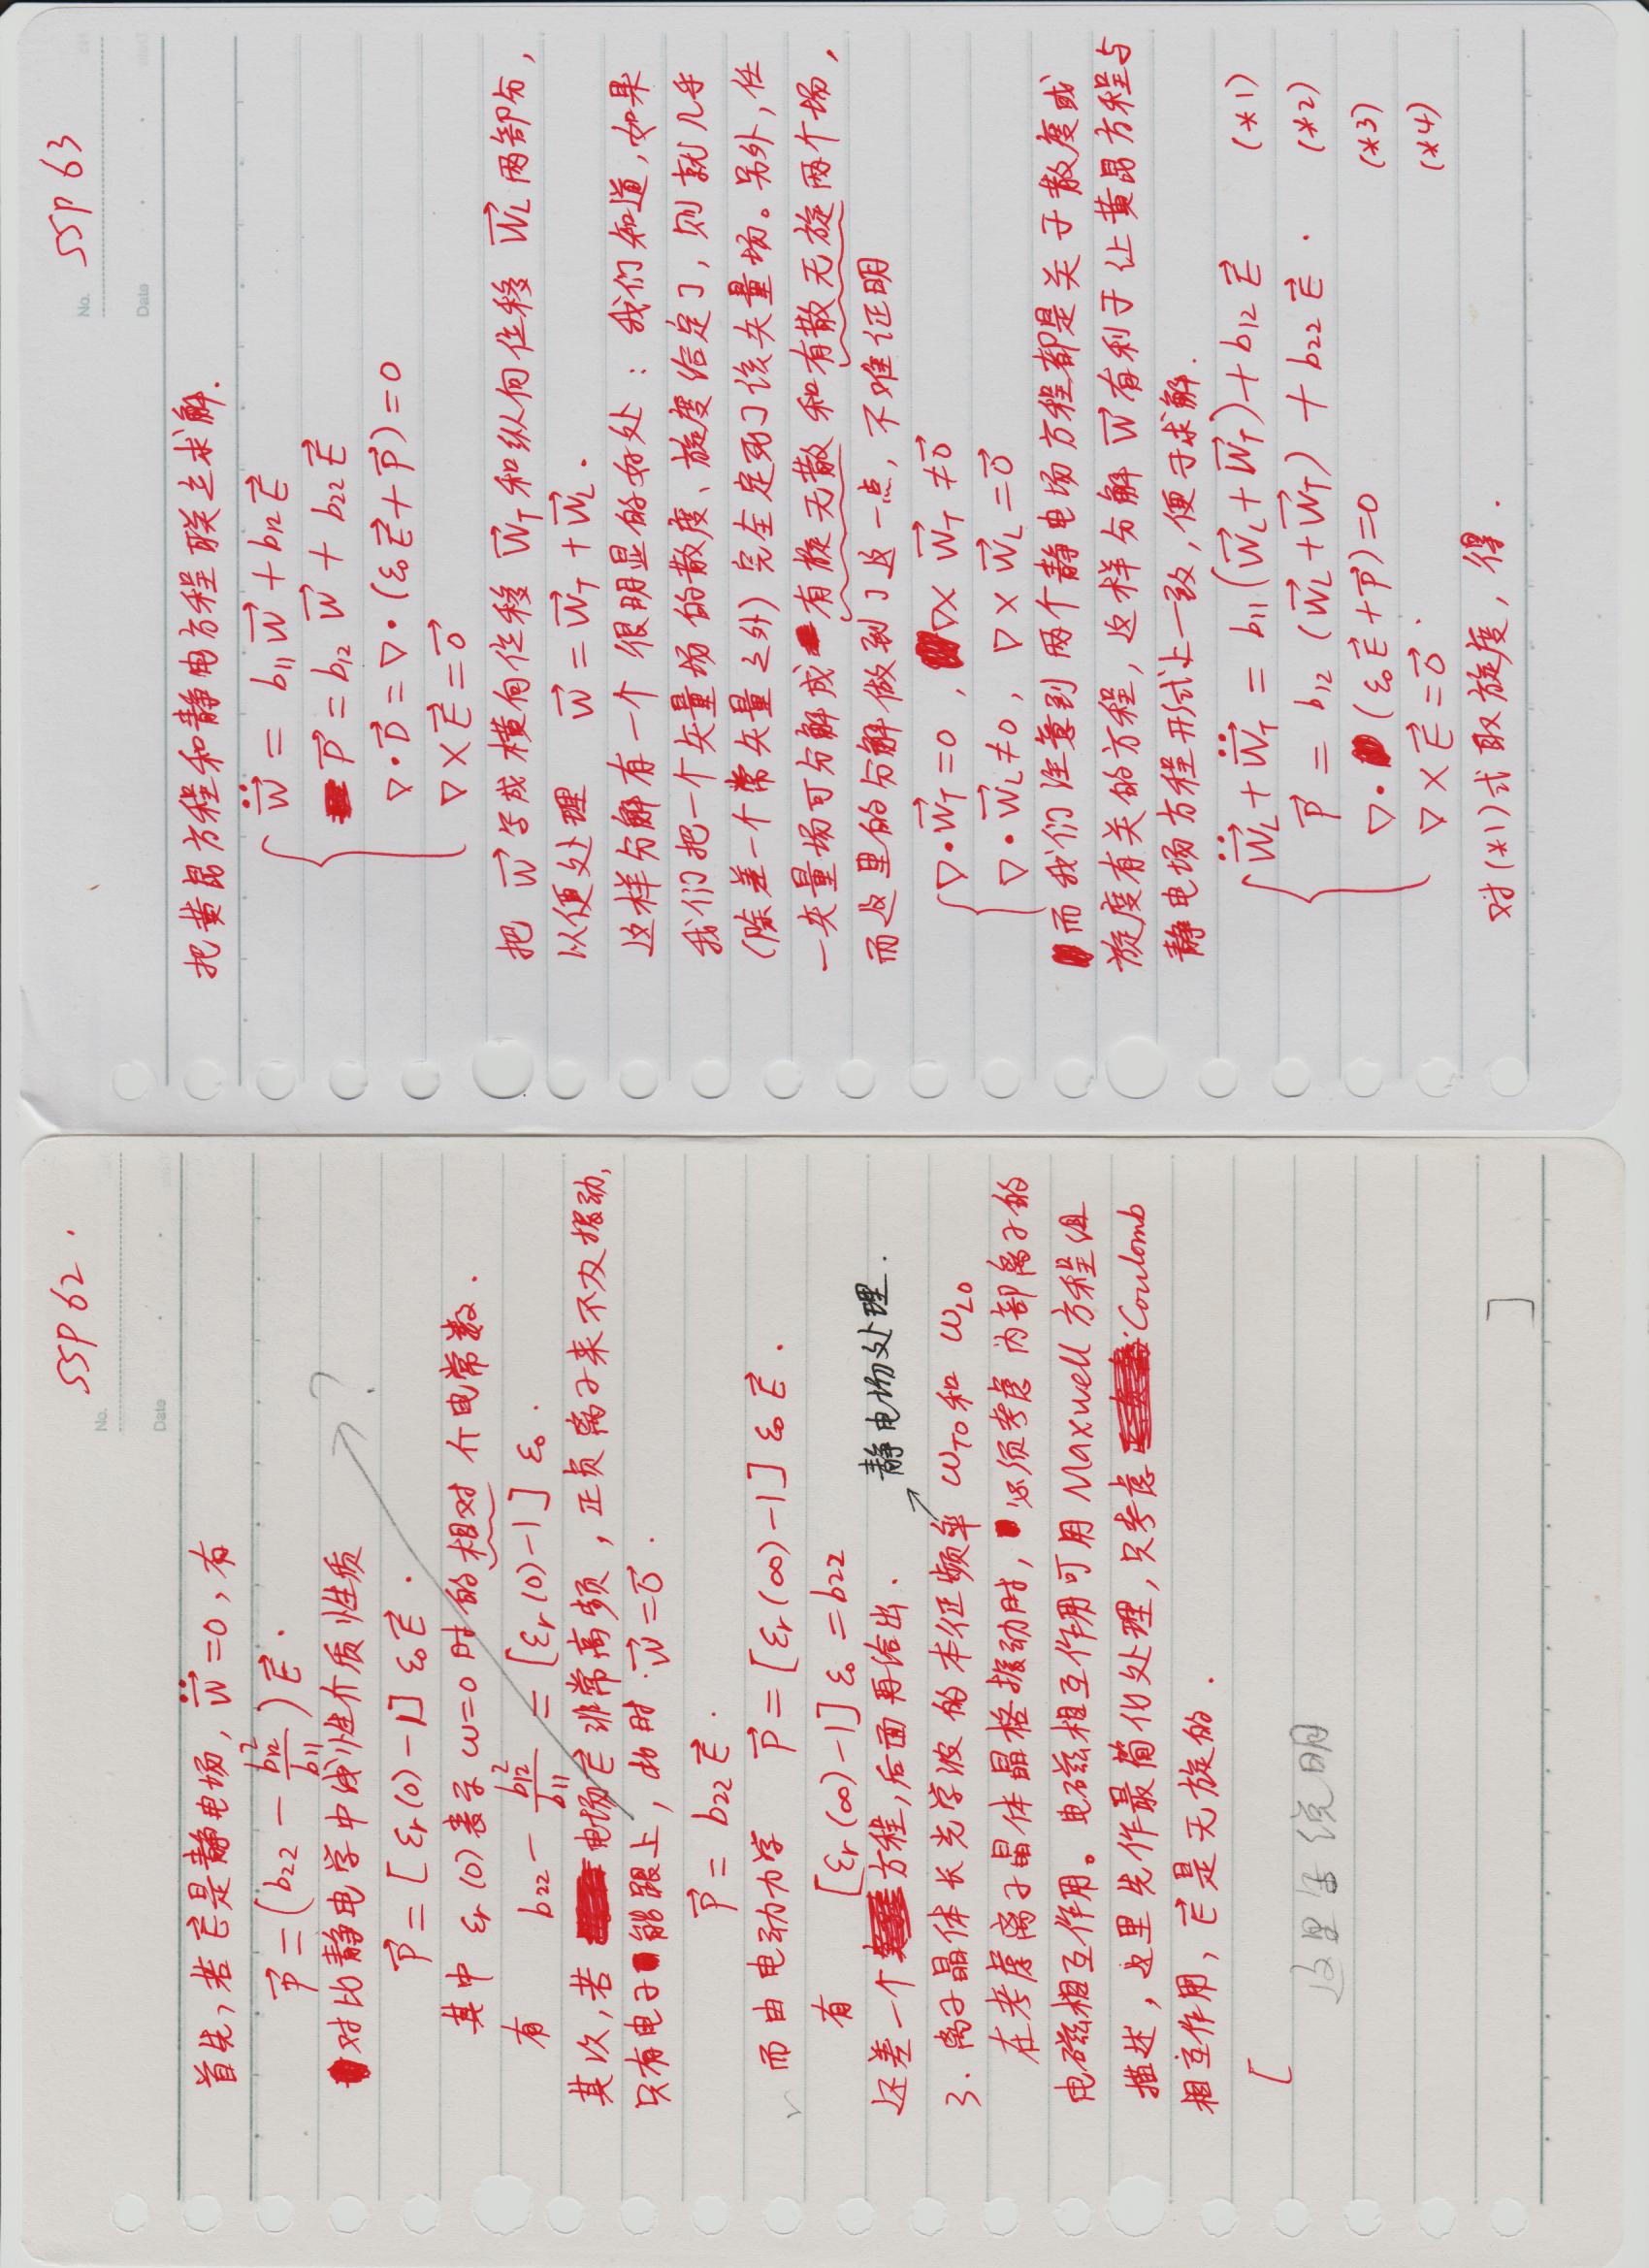 SSP 62 .
No.
Date
首先,若 $\vec{E}$ 是静电场, $\ddot{\vec{W}}=0$, 有
$\vec{P}=(b_{22}-\frac{b_{12}^2}{b_{11}})\vec{E}$ .
对比静电学中线性介质性质
?
$\vec{P}=[\varepsilon_r(0)-1]\varepsilon_0\vec{E}$ .
其中 $\varepsilon_r(0)$ 表示 $\omega=0$ 时的相对介电常数.
有 $b_{22}-\frac{b_{12}^2}{b_{11}}=[\varepsilon_r(0)-1]\varepsilon_0$ .
其次,若电场 $\vec{E}$ 非常高频,正负离子来不及振动,
只有电子能跟上,此时 $\vec{W}=\vec{0}$ .
$\vec{P}=b_{22}\vec{E}$ .
而由电动力学 $\vec{P}=[\varepsilon_r(\infty)-1]\varepsilon_0\vec{E}$ .
有 $[\varepsilon_r(\infty)-1]\varepsilon_0=b_{22}$
还差一个方程,后面再给出.
静电场处理.
3. 离子晶体长光学波的本征频率 $\omega_{TO}$ 和 $\omega_{LO}$
在考虑离子晶体晶格振动时,必须考虑内部离子的
电磁相互作用。电磁相互作用可用 Maxwell 方程组
描述,这里先作最简化处理,只考虑 Coulomb
相互作用, $\vec{E}$ 是无旋的.
[
这里写说明
]
SSP 63
No.
Date
把黄昆方程和静电方程联立求解.
$\ddot{\vec{W}}=b_{11}\vec{W}+b_{12}\vec{E}$
$\vec{P}=b_{12}\vec{W}+b_{22}\vec{E}$
$\nabla\cdot\vec{D}=\nabla\cdot(\varepsilon_0\vec{E}+\vec{P})=0$
$\nabla\times\vec{E}=\vec{0}$
把 $\vec{W}$ 写成横向位移 $\vec{W}_T$ 和纵向位移 $\vec{W}_L$ 两部分,
以便处理 $\vec{W}=\vec{W}_T+\vec{W}_L$ .
这样分解有一个很明显的好处:我们知道,如果
我们把一个矢量场的散度、旋度给定了,则就几乎
(除差一个常矢量之外)完全定死了该矢量场。另外,任
一矢量场可分解成有旋无散和有散无旋两个场,
而这里的分解做到了这一点,不难证明
$\nabla\cdot\vec{W}_T=0$ , $\nabla\times\vec{W}_T\neq\vec{0}$
$\nabla\cdot\vec{W}_L\neq0$ , $\nabla\times\vec{W}_L=\vec{0}$
而我们注意到两个静电场方程都是关于散度或
旋度有关的方程,这样分解 $\vec{W}$ 有利于让黄昆方程与
静电场方程形式上一致,便于求解.
$\ddot{\vec{W}}_L+\ddot{\vec{W}}_T=b_{11}(\vec{W}_L+\vec{W}_T)+b_{12}\vec{E}$ (*1)
$\vec{P}=b_{12}(\vec{W}_L+\vec{W}_T)+b_{22}\vec{E}$ . (*2)
$\nabla\cdot(\varepsilon_0\vec{E}+\vec{P})=0$ (*3)
$\nabla\times\vec{E}=\vec{0}$ (*4)
对(*1)式取旋度,得.